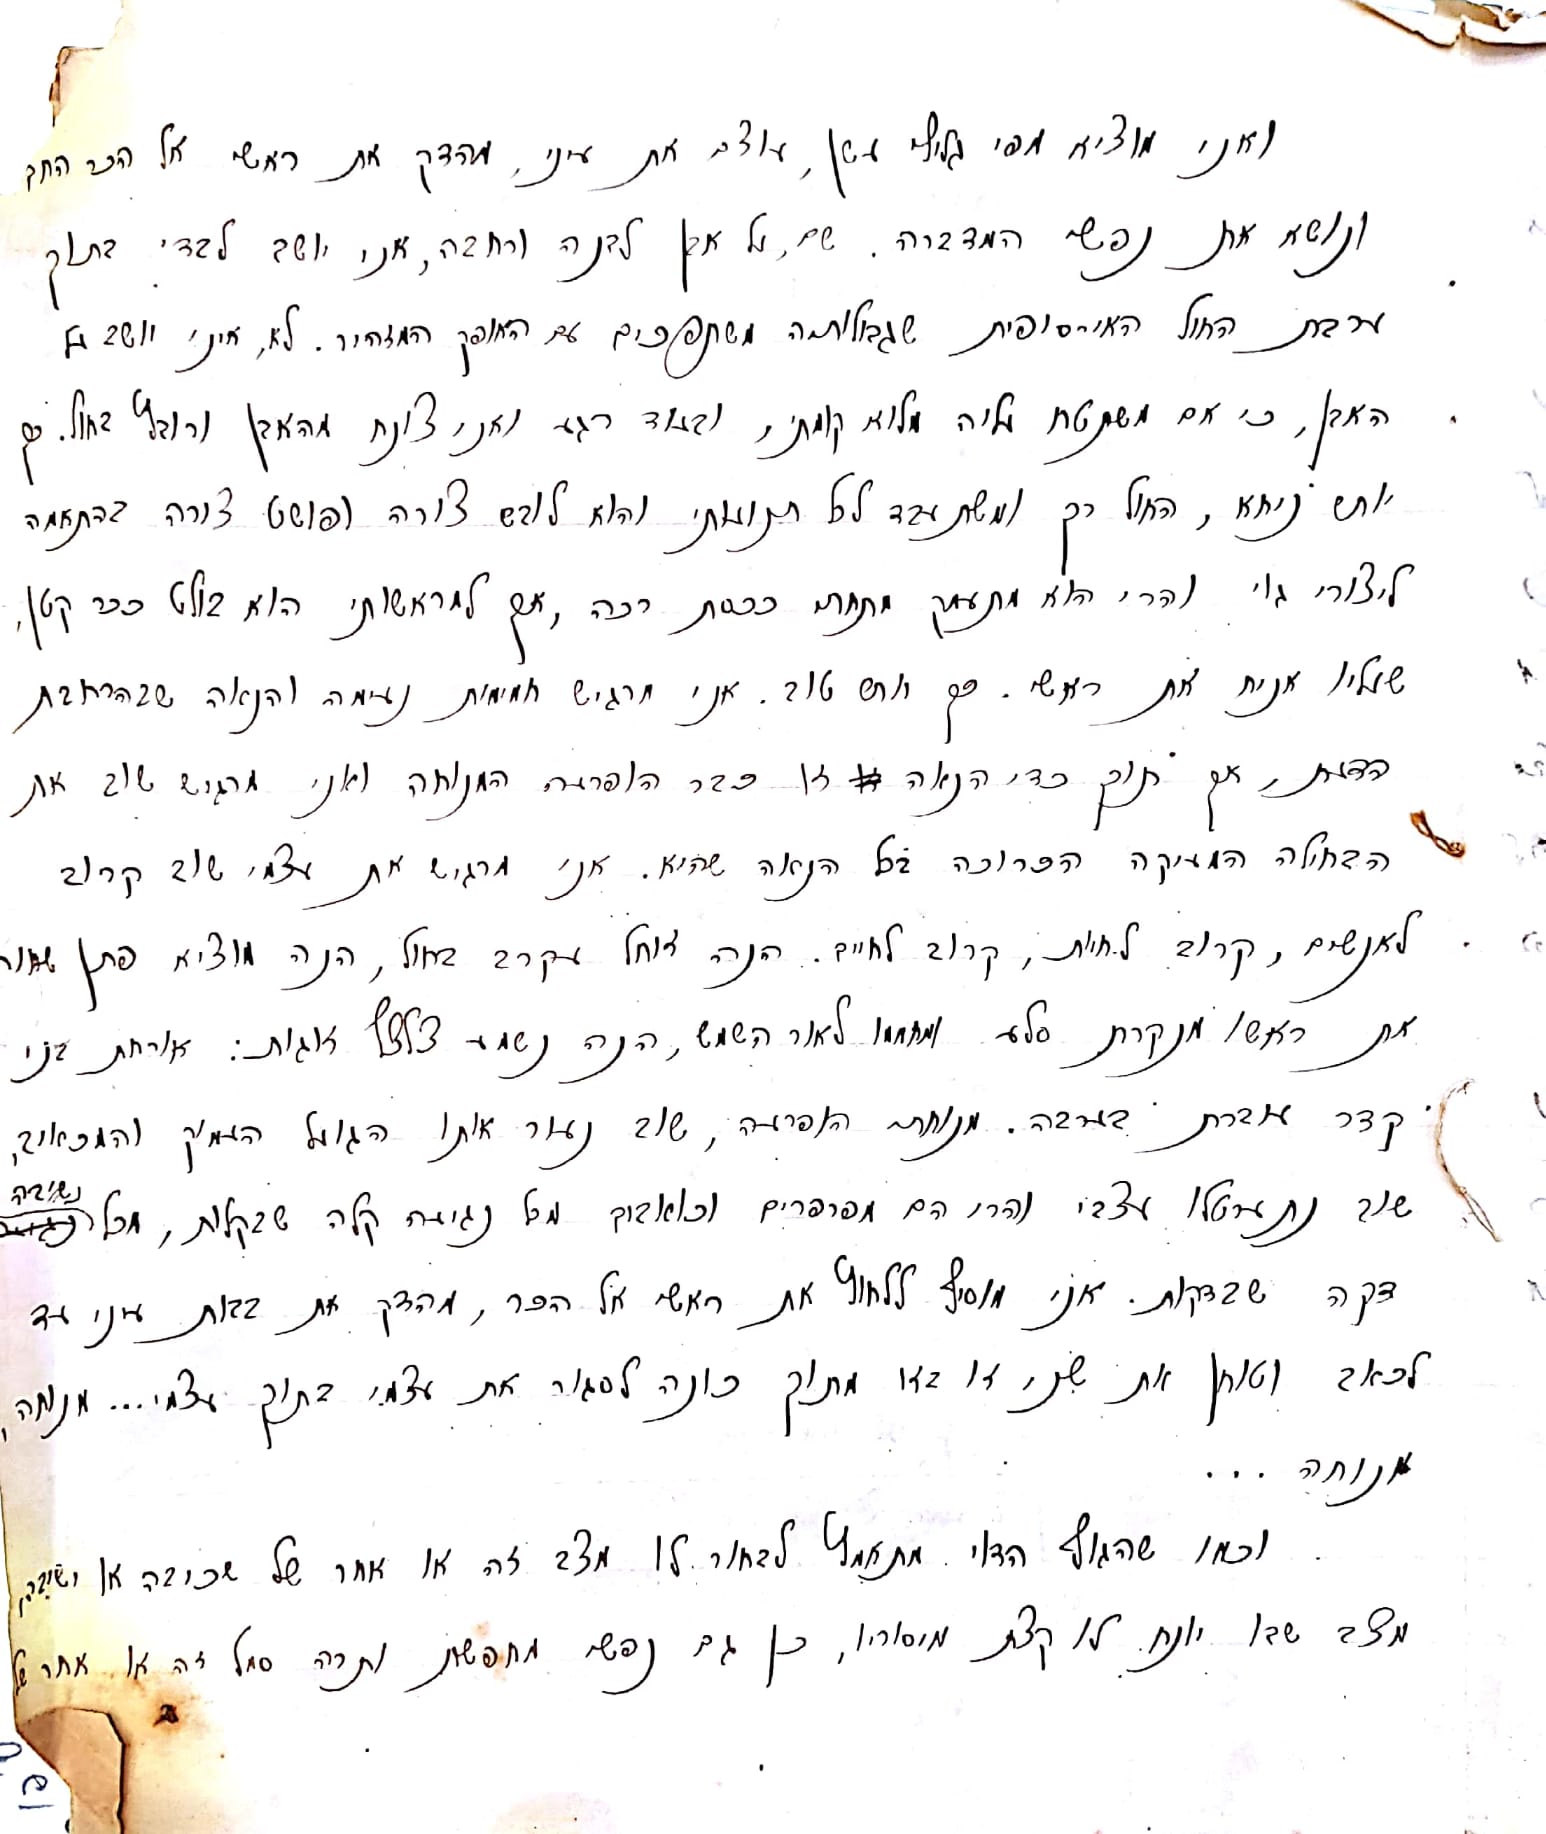 ואני מוציא מפי גליף עשן, עוצם את עיני, מהדק את ראשי אל הכר החם
ונושא את נפשי המדברה. שם, על אבן לבנה ורחבה, אני יושב לבדי בתוך
ערבת החול האינסופית שגבולותיה משתפכים עם האופק המזהיר. לא, איני יושב על
האבן, כי אם משתטח עליה מלוא קומתי, ובעוד רגע ואני צונח מהאבן ורובץ בחול. כך
יותר ניחא, החול רך ומשתעבד לכל תנועותי והוא לובש צורה ופושט צורה בהתאמה
ליצורי גוי והרי הוא מתעמק מתחתי ככסת רכה, אך למראשותי הוא בולט ככר קטן,
שעליו אניח את ראשי. כך יותר טוב. אני מרגיש חמימות נעימה והנאה שבהרחבת
הדעת, אך תוך כדי הנאה זו כבר הופרעה המנוחה ואני מרגיש שוב את
הבחילה המעיקה הכרוכה בכל הנאה שהיא. אני מרגיש את עצמי שוב קרוב
לאנשים, קרוב לחיות, קרוב לחיים. הנה זוחל עקרב בחול, הנה מוציא פתן שחור
את ראשו מנקרת סלע ומחממו לאור השמש, הנה נשמע צלצול זוגות: אורחת בני
קדר עוברת בערבה. מנוחתי הופרעה, שוב נעור אותו הגועל העמוק והמכאיב,
שוב נתערטלו עצבי והרי הם מפרפרים וכואבים מכל נגיעה קלה שבקלות, מכל נשיבה
דקה שבדקות. אני מוסיף ללחוץ את ראשי אל הכר, מהדק את בבות עיני עד
לכאב וטוחן את שני זו בזו מתוך כונה לסגור את עצמי בתוך עצמי... מנוחה,
מנוחה ...
וכמו שהגוף הדוי מתאמץ לבחור לו מצב זה או אחר של שכיבה או ישיבה,
מצב שבו יונח לו קצת מיסוריו, כן גם נפשי מחפשת ותרה סמל זה או אחר של